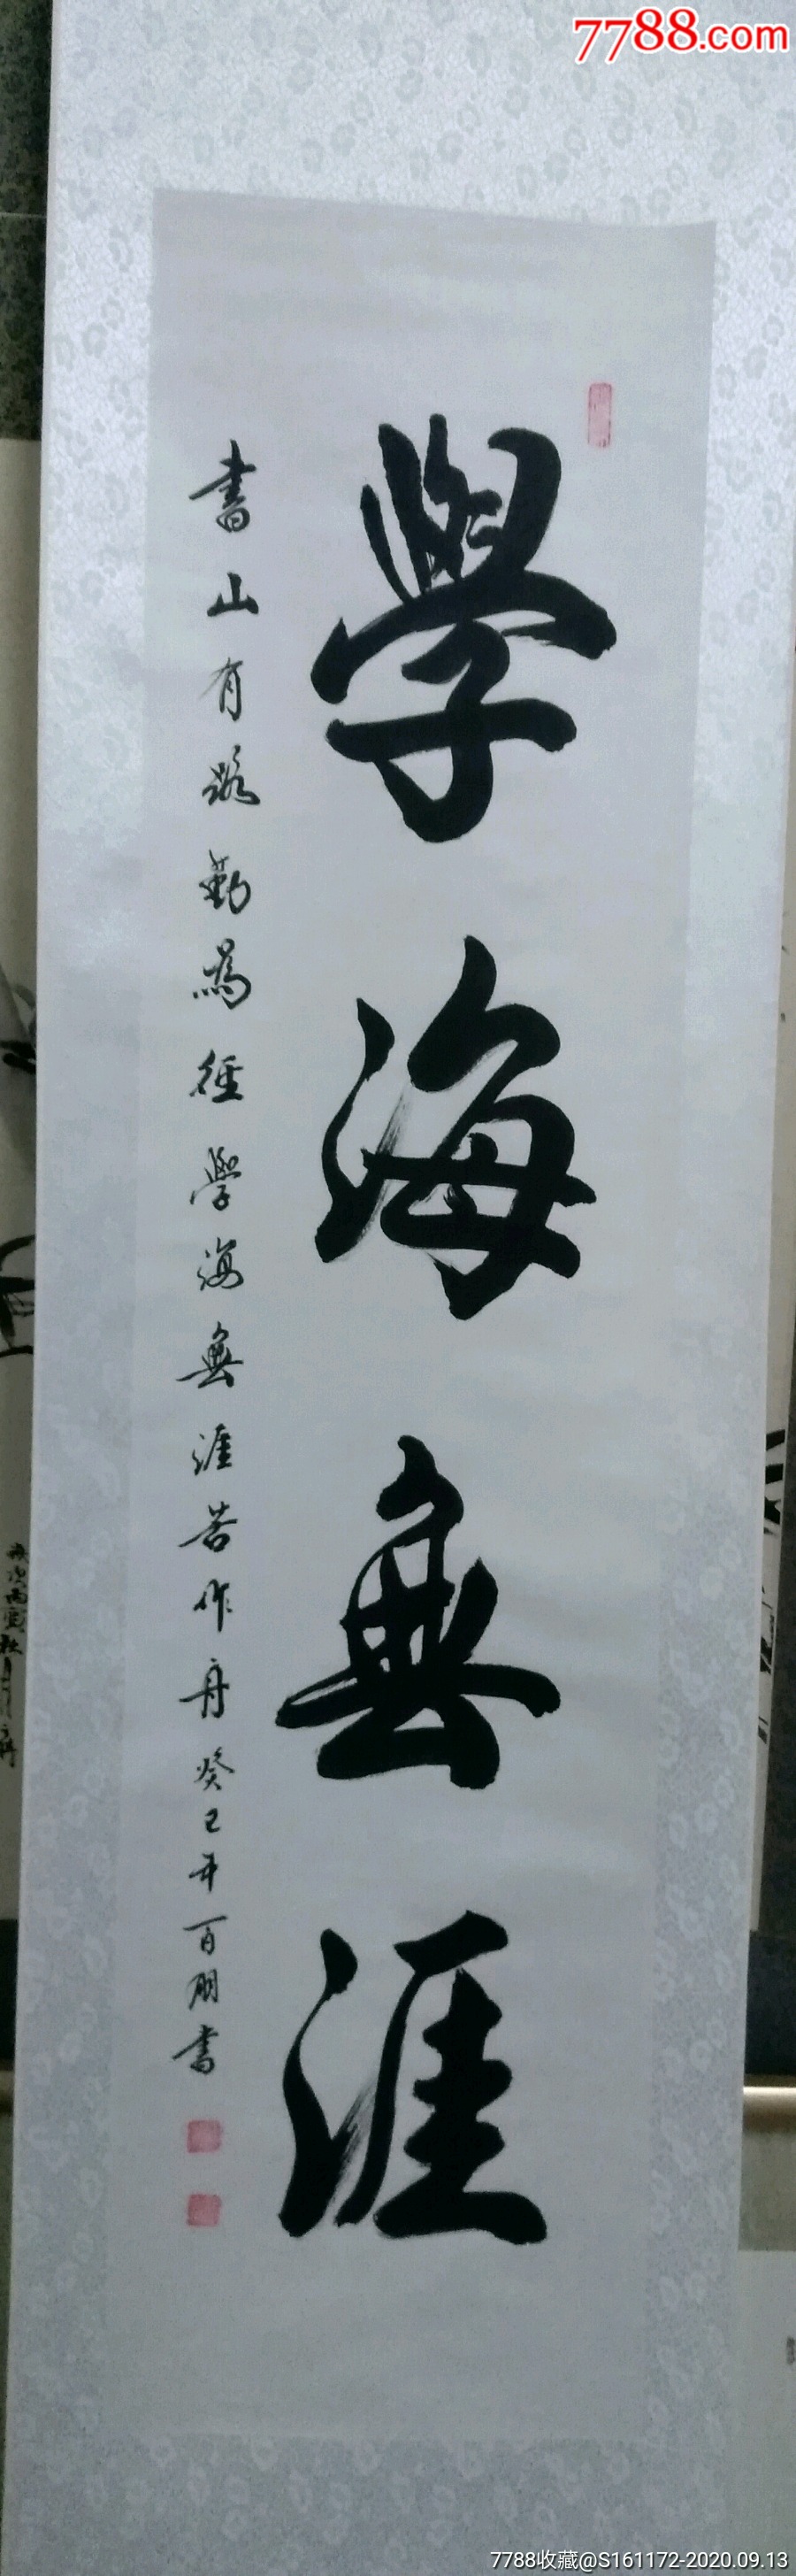 7788.com
學海無涯
書山有路勤為徑學海無涯苦作舟癸巳年百朋書
7788收藏@S161172-2020.09.13